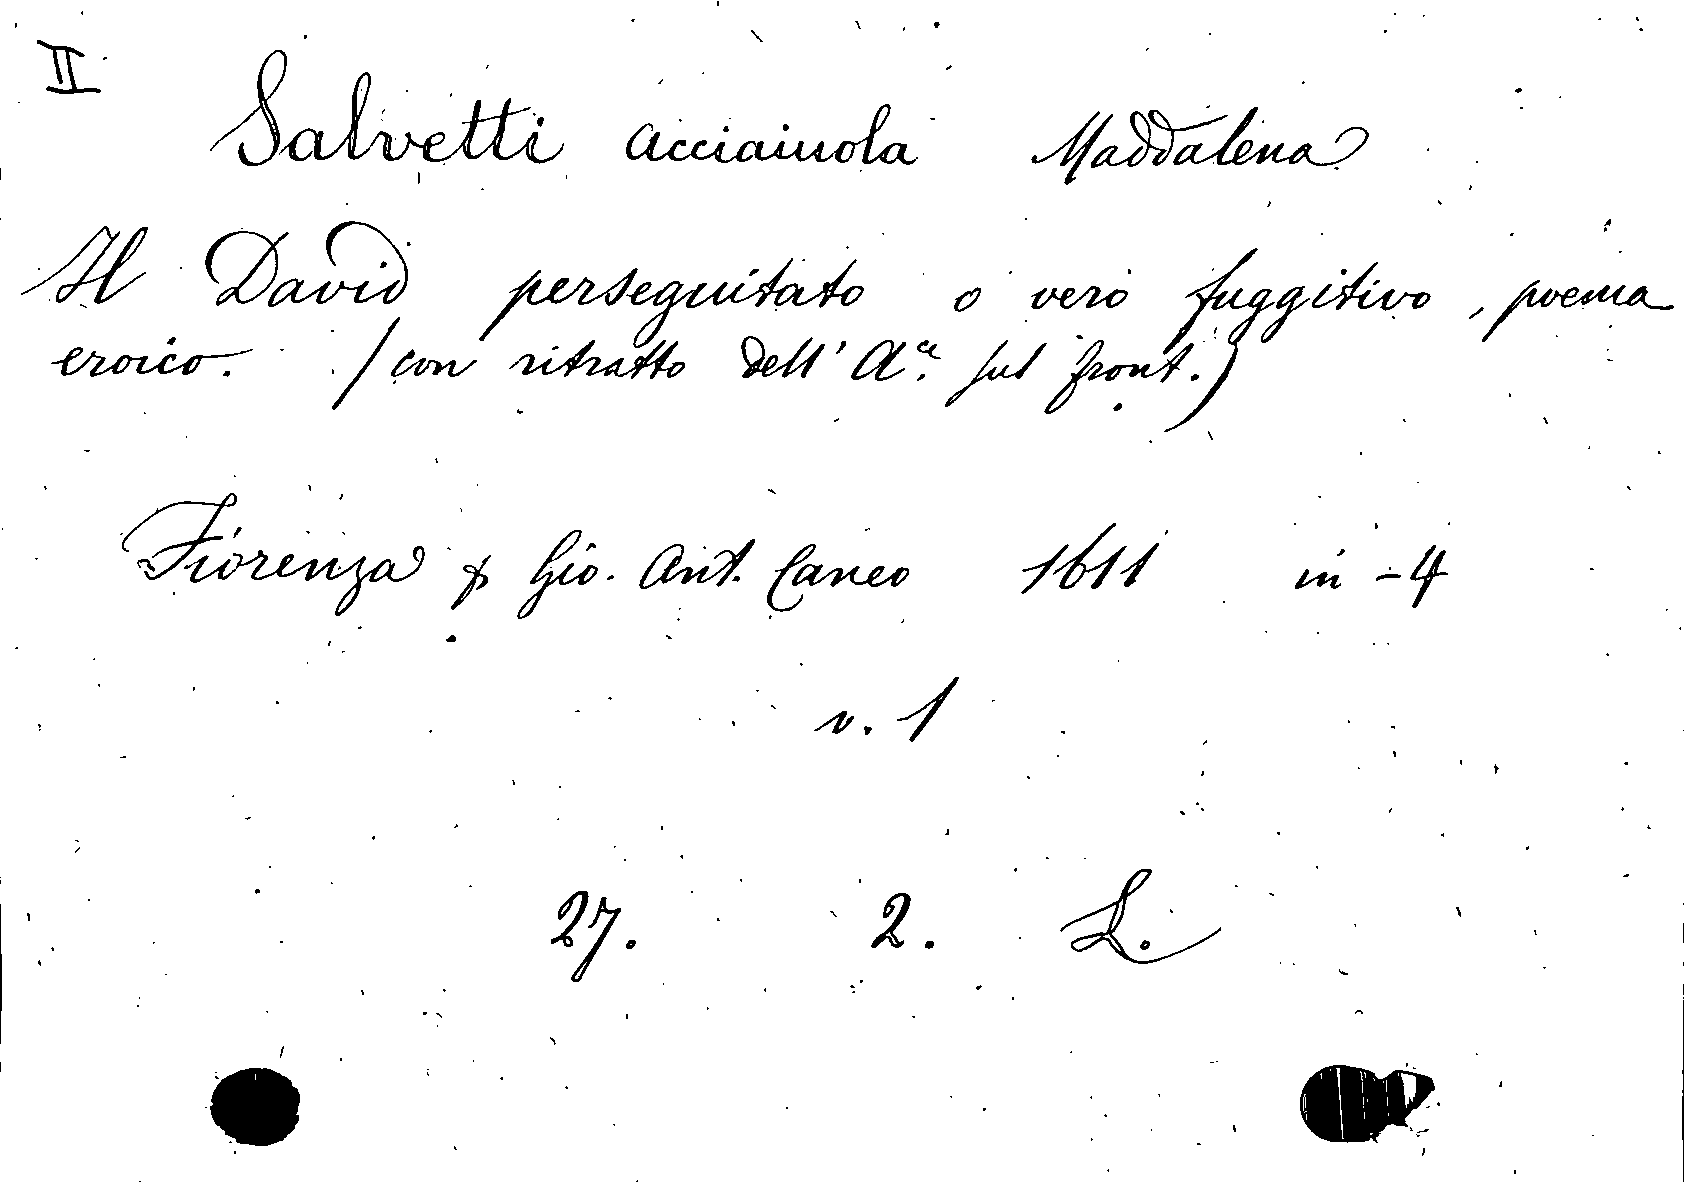 II
Salvetti Acciaiuola Maddalena
Il David perseguitato o vero fuggitivo, poema
eroico. (con ritratto dell' Aª. sul front.)
Fiorenza p Gio. Ant. Caneo 1611 in-4
v. 1
27. 2. L.